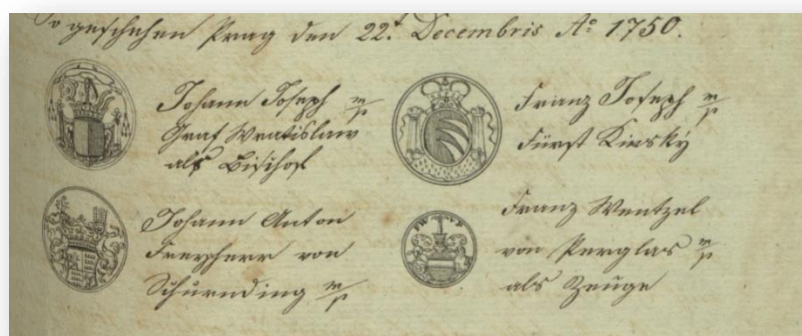 So geschehen Prag den 22t. Decembris Aõ 1750.
Johann Joseph m/p
Graf Wratislaw
als Bischof
Franz Joseph m/p
Fürst Kinsky
Johann Anton
Freyherr von
Schirnding m/p
F W V P
Franz Wentzel
von Perglas m/p
als Zeuge